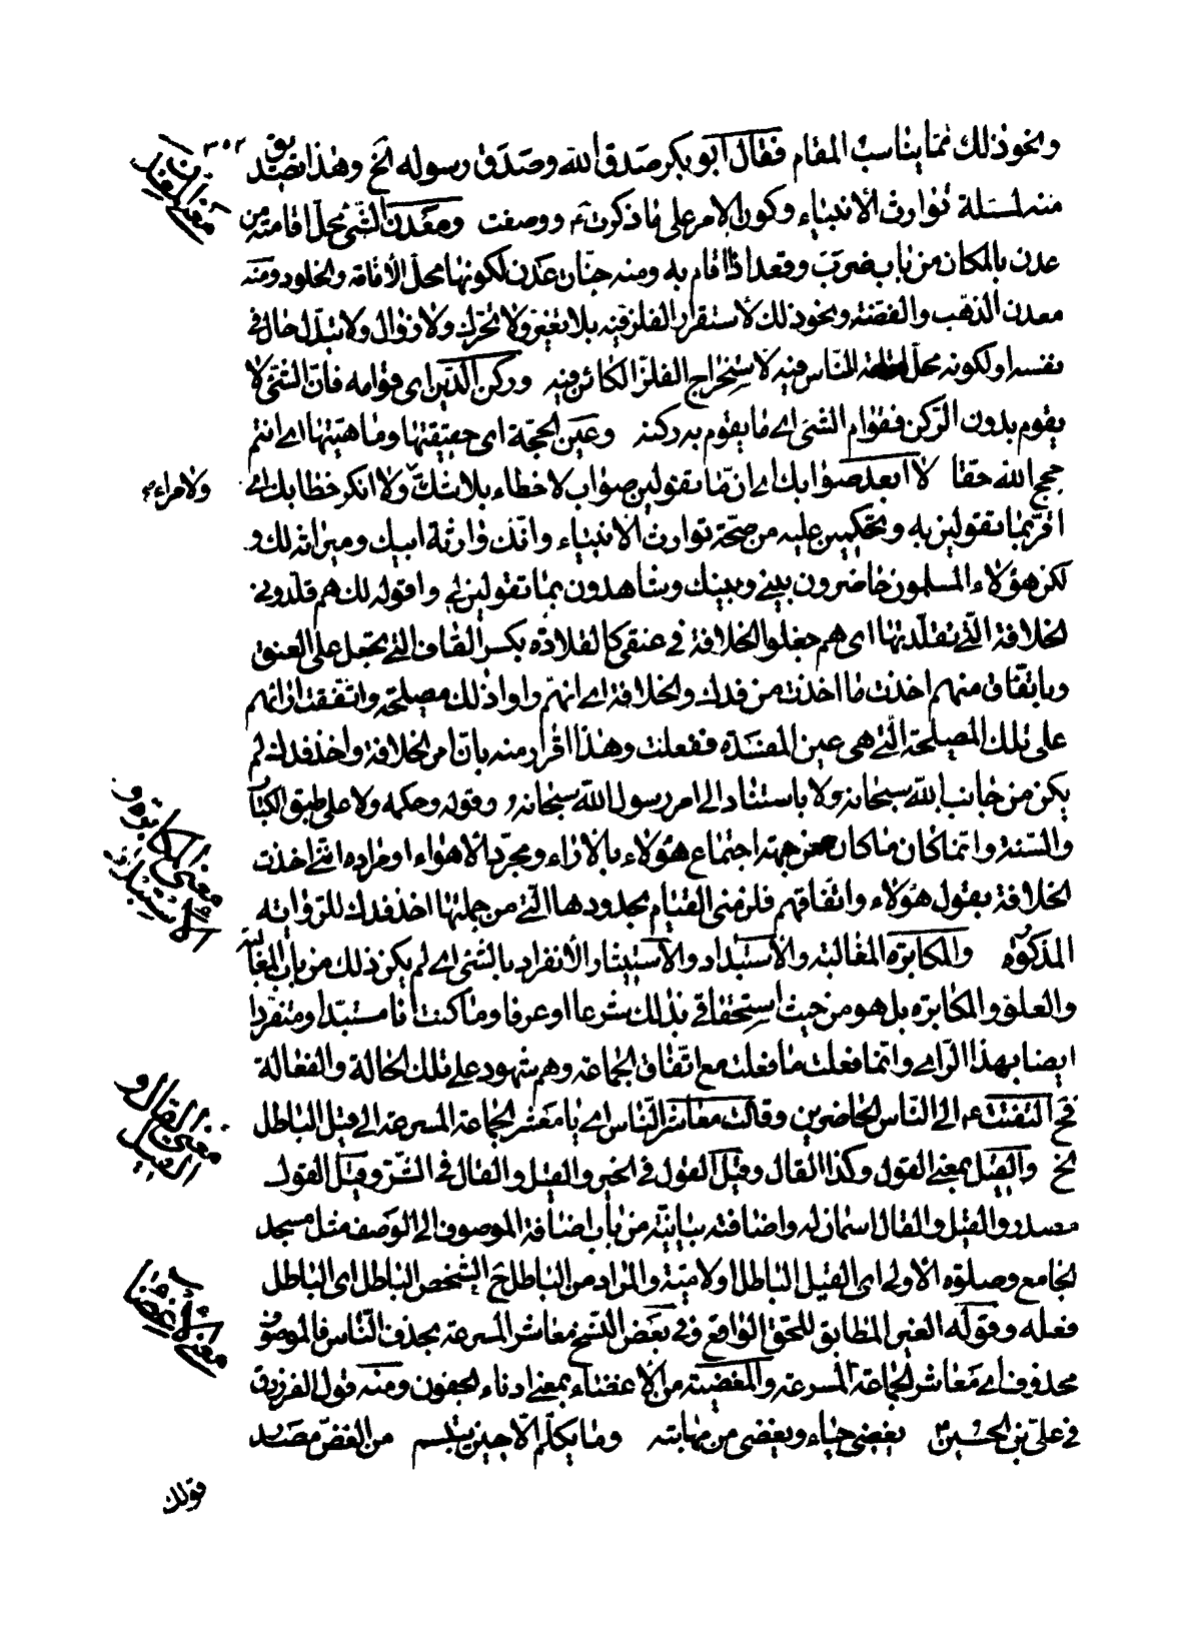 ٣٥٢
ونحو ذلك مما يناسب المقام فقال ابو بكر صدق الله وصدق رسوله الخ وهذا تصديق
منه لمسئلة توارث الأنبياء وكون الامر على ما ذكرت ووصفت ومعدن الشئ محل اقامته من
عدن بالمكان من باب ضرب وقعد اذا قام به ومنه جنات عدن لكونها محل الأقامة والخلود ومنه
معدن الذهب والفضة ونحو ذلك لأستقرار الفلز فيه بلا تغير ولا تحرك ولا زوال ولا تبدل حال في
نفسه او لكونه محل اقامة الناس فيه لأستخراج الفلز الكائن فيه وركن الدين اى قوامه فان الشئ لا
يقوم بدون الركن فقوام الشئ اى ما يقوم به ركنه وعين الحجة اى حقيقتها وماهيتها اى انتم
حجج الله حقا لا ابعد صوابك اى ان ما تقولين صواب لا خطاء بلا شك ولا انكر خطابك اى
اقر بما تقولين به وتحكمين عليه من صحة توارث الأنبياء وانك وارثة ابيك وميراثه لك و
لكن هؤلاء المسلمون حاضرون بينى وبينك وشاهدون بما تقولين لى واقوله لك هم قلدونى
الخلافة التى تقلدتها اى هم جعلوا الخلافة فى عنقى كالقلادة بكسر القاف التى تجعل على العنق
وباتفاق منهم اخذت ما اخذت من فدك والخلافة اى انهم راوا ذلك مصلحة واتفقت ارائهم
على تلك المصلحة التى هى عين المفسدة ففعلت وهذا اقرار منه بان امر الخلافة واخذ فدك لم
يكن من جانب الله سبحانه ولا باستناد الى امر رسول الله سبحانه وقوله وحكمه ولا على طبق الكتاب
والسنة وانما كان ما كان من جهة اجتماع هؤلاء بالاراء ومجرد الاهواء او مراده انى اخذت
الخلافة بقول هؤلاء واتفاقهم فلزمنى القيام بحدودها التى من جملتها اخذ فدك للرواية
المذكورة والمكابرة المغالبة والأستبداد والأستيثار الأنفراد بالشئ اى لم يكن ذلك من باب المغالبة
والعلو والمكابرة بل هو من حيث استحقاقى بذلك شرعا او عرفا وما كنت انا مستبدا ومنفردا
ايضا بهذا الراى وانما فعلت ما فعلت مع اتفاق الجماعة وهم شهود على تلك الحالة والفعالة
فخ التفتت الى الناس الحاضرين وقالت معاشر الناس اى يا معشر الجماعة المسرعة الى قيل الباطل
الخ والقيل بمعنى القول وكذا القال وقيل القول فى الخير والقيل والقال فى الشر وقيل القول
مصدر والقيل والقال اسمان له واضافته بيانية من باب اضافة الموصوف الى الوصف مثل مسجد
الجامع وصلوة الأولى اى القيل الباطل او لامية والمراد من الباطل ح الشخص الباطل اى الباطل
فعله وقوله الغير المطابق للحق الواقع وفى بعض النسخ معاشر المسرعة بحذف الناس فالموصوف
محذوف اى معاشر الجماعة المسرعة والمغضية من الأغضاء بمعنى ادناء الجفون ومنه قول الفرزدق
فى على بن الحسين يغضى حياء ويغضى من مهابته وما يكلم الا حين يبتسم من الغض مصدر
قولك
معنى المعدن
ولا مراء
معنى المكابرة و
الأستبداد
معنى القال و
القيل
معنى الأغضاء